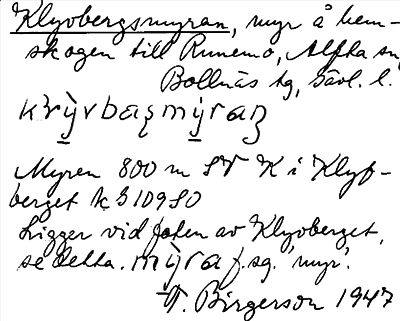 Klyvbergsmyran, myr å hem-
skogen till Runemo, Alfta sn,
Bollnäs tg, Gävl. l.
Myren 800 m SV K i Klyf-
berget k 310980
Ligger vid foten av Klyvberget,
se detta. mỳra f. sg. 'myr'.
T. Birgerson 1947